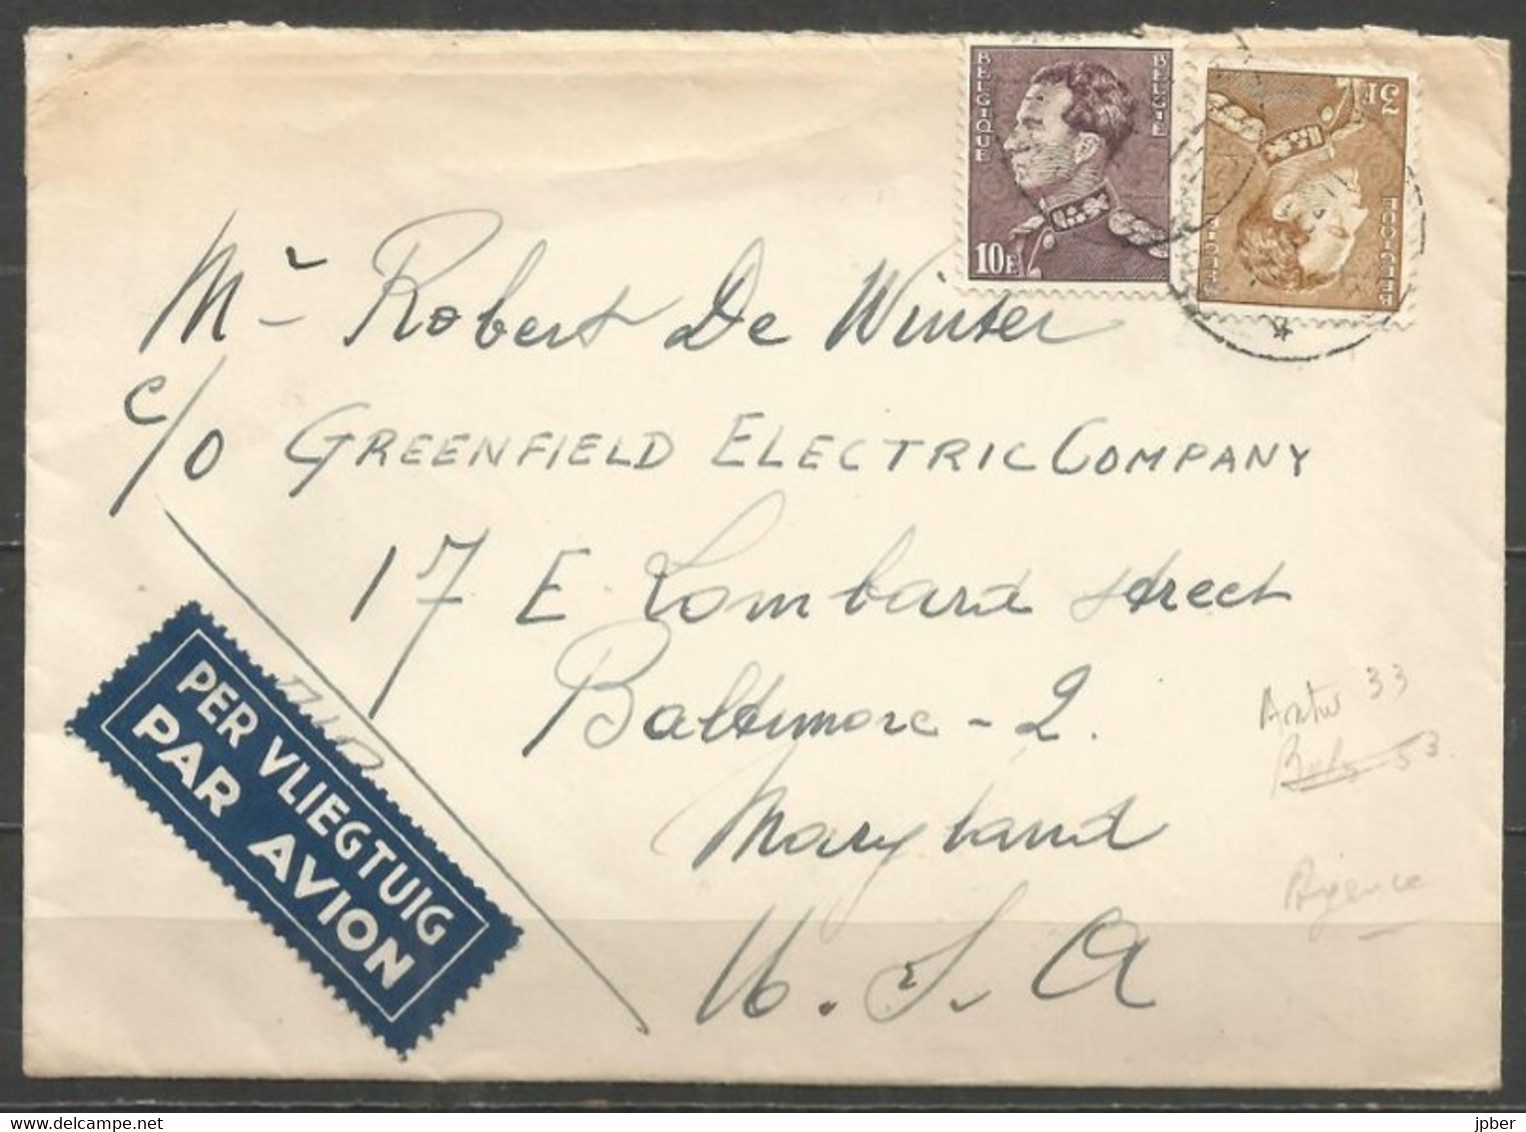 BELGIQUE
BELGIE
10F
BELGIQUE
BELGIE
3F
Mr Robert De Winter
c/o GREENFIELD ELECTRIC COMPANY
17 E. Lombard street
Baltimore - 2.
Maryland
U.S.A
PER VLIEGTUIG
PAR AVION
33
53
Agence
jpber